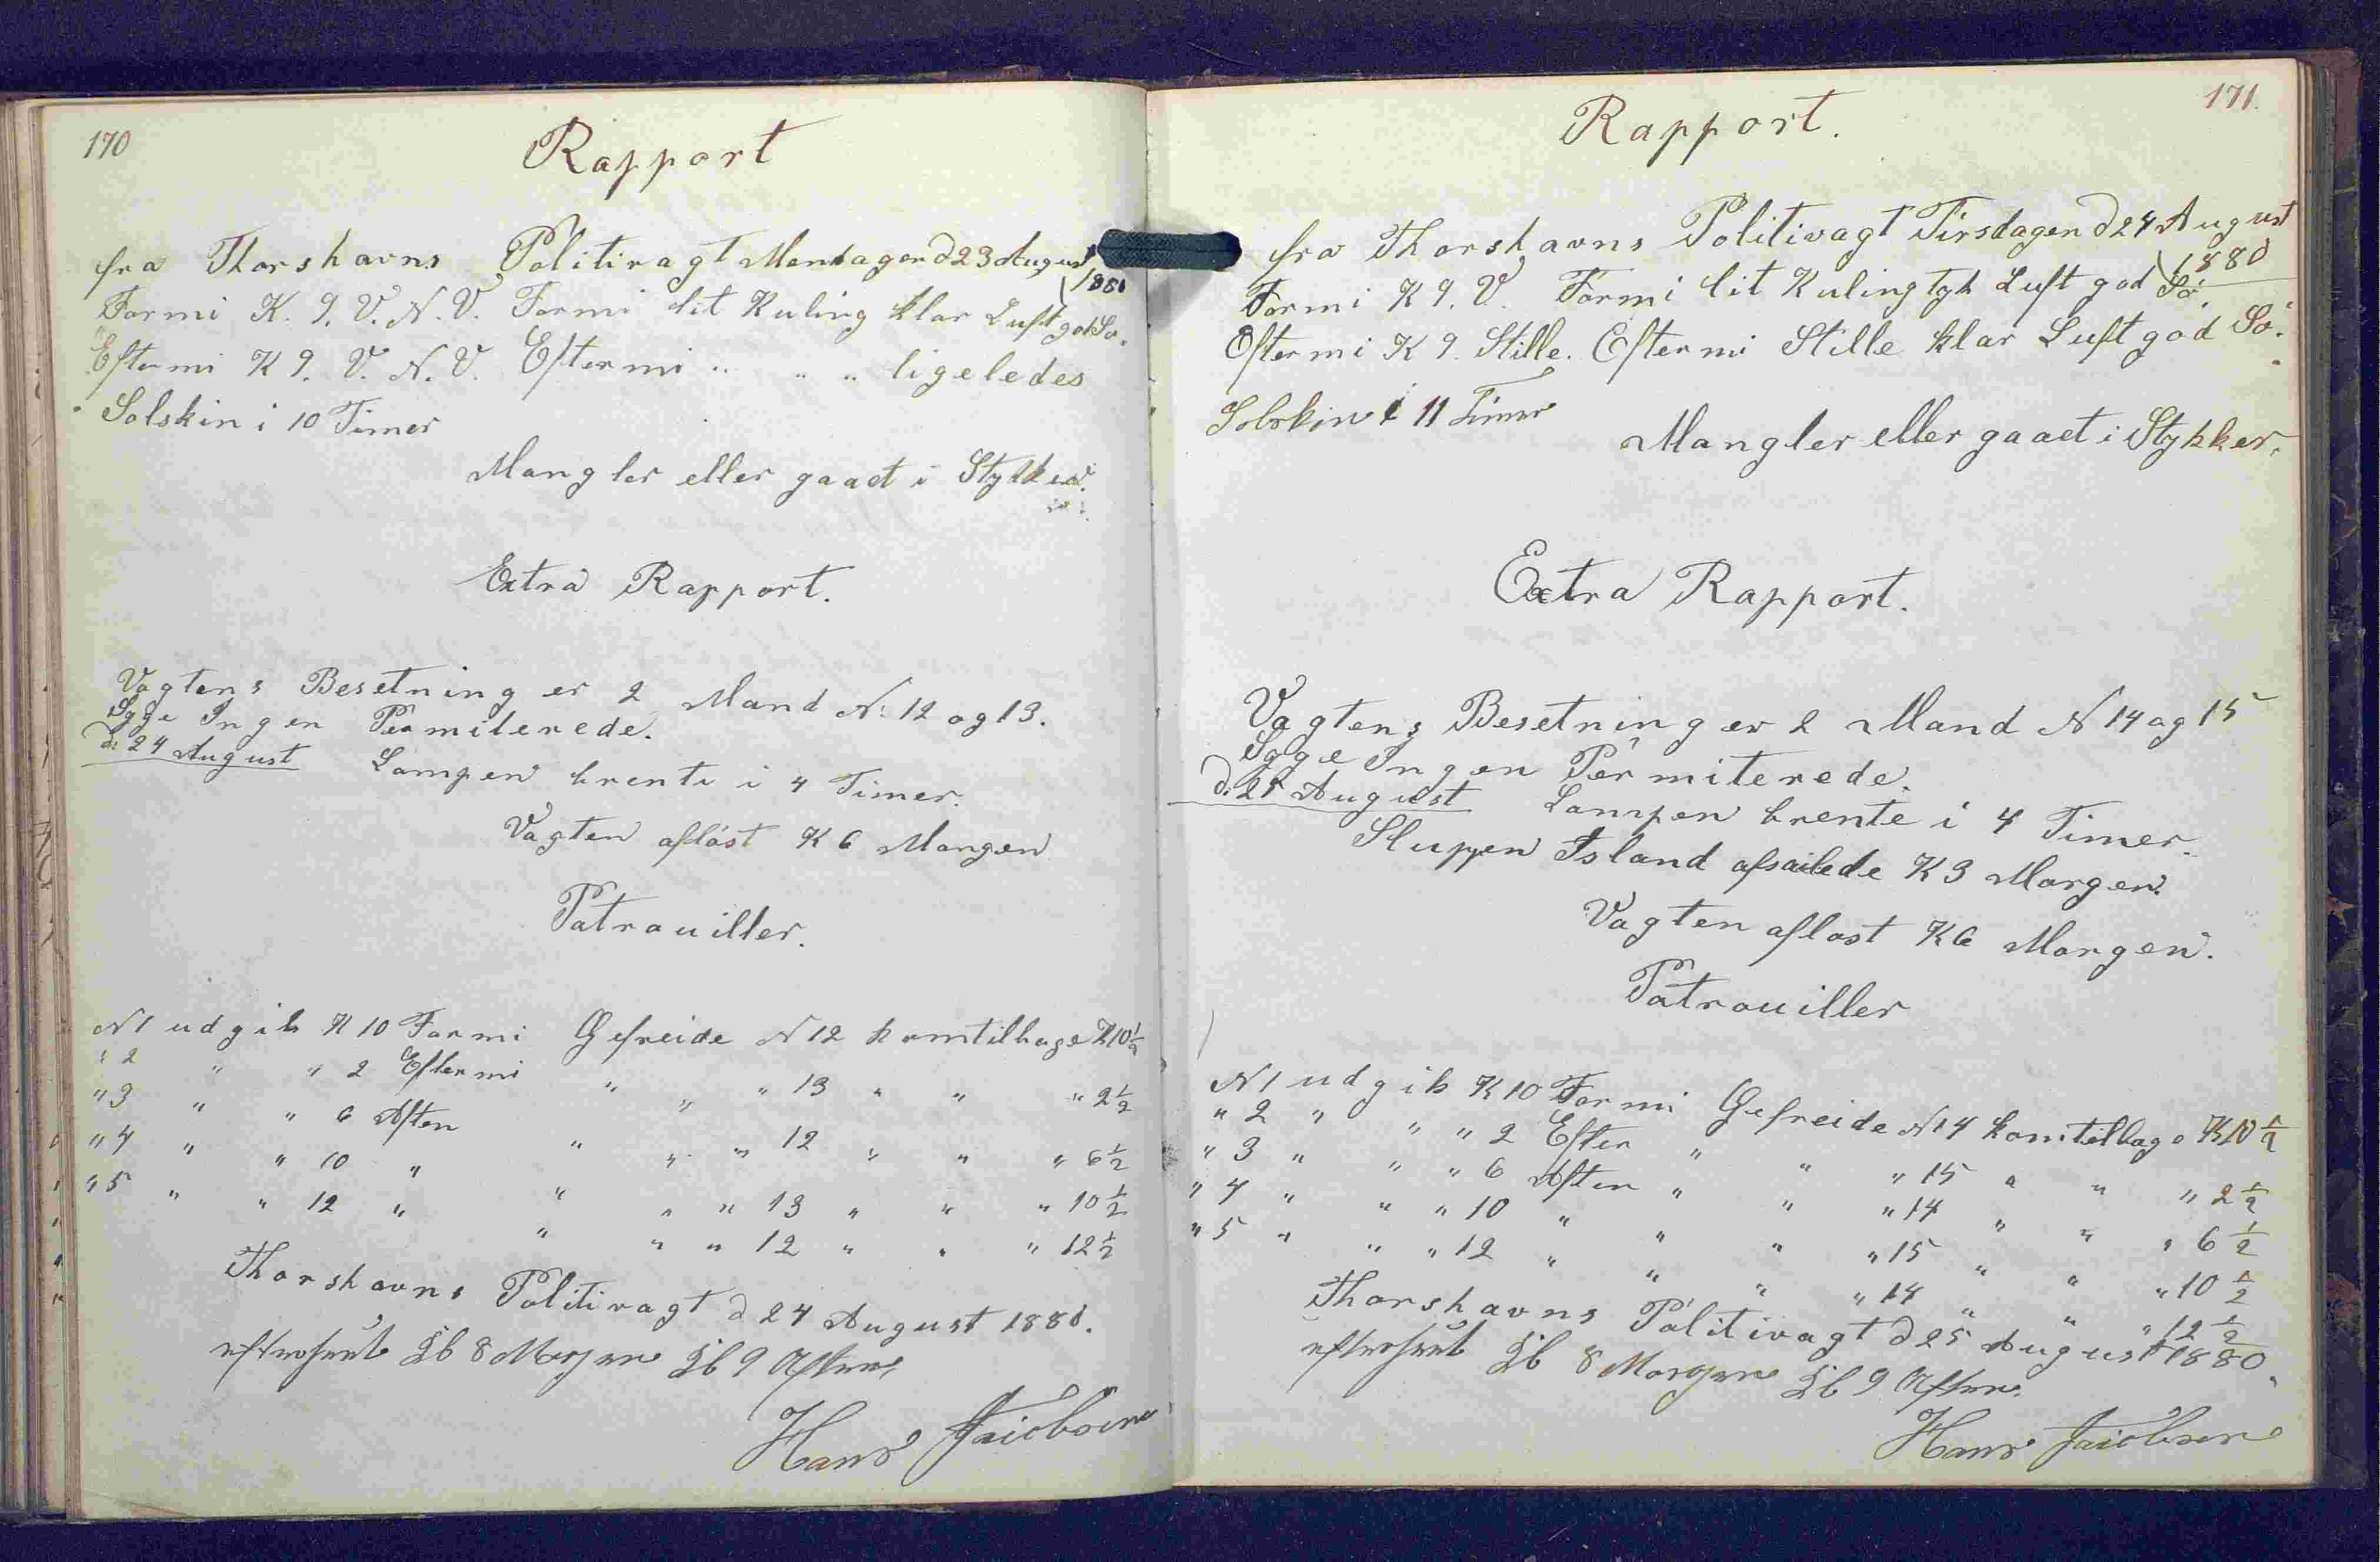 170
Rapport
fra Thorshavns Politivagt Mandagen d 23 August
1880
Formi K. 9. V. N. V. Formi lit Kuling klar Luft god Sø.
Eftermi K 9. V. N. V. Eftermi " " " ligeledes
Solskin i 10 Timer
Mangler eller gaaet i Stykker.
Extra Rapport.
Vagtens Besetning er 2 Mand N: 12 og 13.
Syge Ingen Permiterede.
d: 24 August Lampen brente i 4 Timer.
Vagten afløst K 6 Morgen
Patrouiller.
N 1 udgik K 10 Formi Gefreide N 12 kom tilbage K 10 1/2
" 2 " " 2 Eftermi " " " 13 " " " 2 1/2
" 3 " " 6 Aften " " " 12 " " " 6 1/2
" 4 " " 10 " " " " 13 " " " 10 1/2
" 5 " " 12 " " " " 12 " " " 12 1/2
Thorshavns Politivagt d 24 August 1880.
efterseet Kl 8 Morgen Kl 9 Aften
Hans Jacobsen
171.
Rapport.
fra Thorshavns Politivagt Tirsdagen d 24 August
1880
Formi K 9. V. Formi lit Kuling tyk Luft god Sø.
Eftermi K 9. Stille. Eftermi Stille klar Luft god Sø.
Solskin i 11 Timer
Mangler eller gaaet i Stykker.
Extra Rapport.
Vagtens Besetning er 2 Mand N 14 og 15
Syge Ingen Permiterede.
d: 25 August Lampen brente i 4 Timer.
Sluppen Island afsailede K 3 Morgen.
Vagten afløst K 6 Morgen.
Patrouiller
N 1 udgik K 10 Formi Gefreide N 14 kom tilbage K 10 1/2
" 2 " " " 2 Efter " " " 15 " " " 2 1/2
" 3 " " " 6 Aften " " " 14 " " " 6 1/2
" 4 " " " 10 " " " " 15 " " " 10 1/2
" 5 " " " 12 " " " " 14 " " " 12 1/2
Thorshavns Politivagt d 25 August 1880.
efterseet Kl 8 Morgen Kl 9 Aften.
Hans Jacobsen